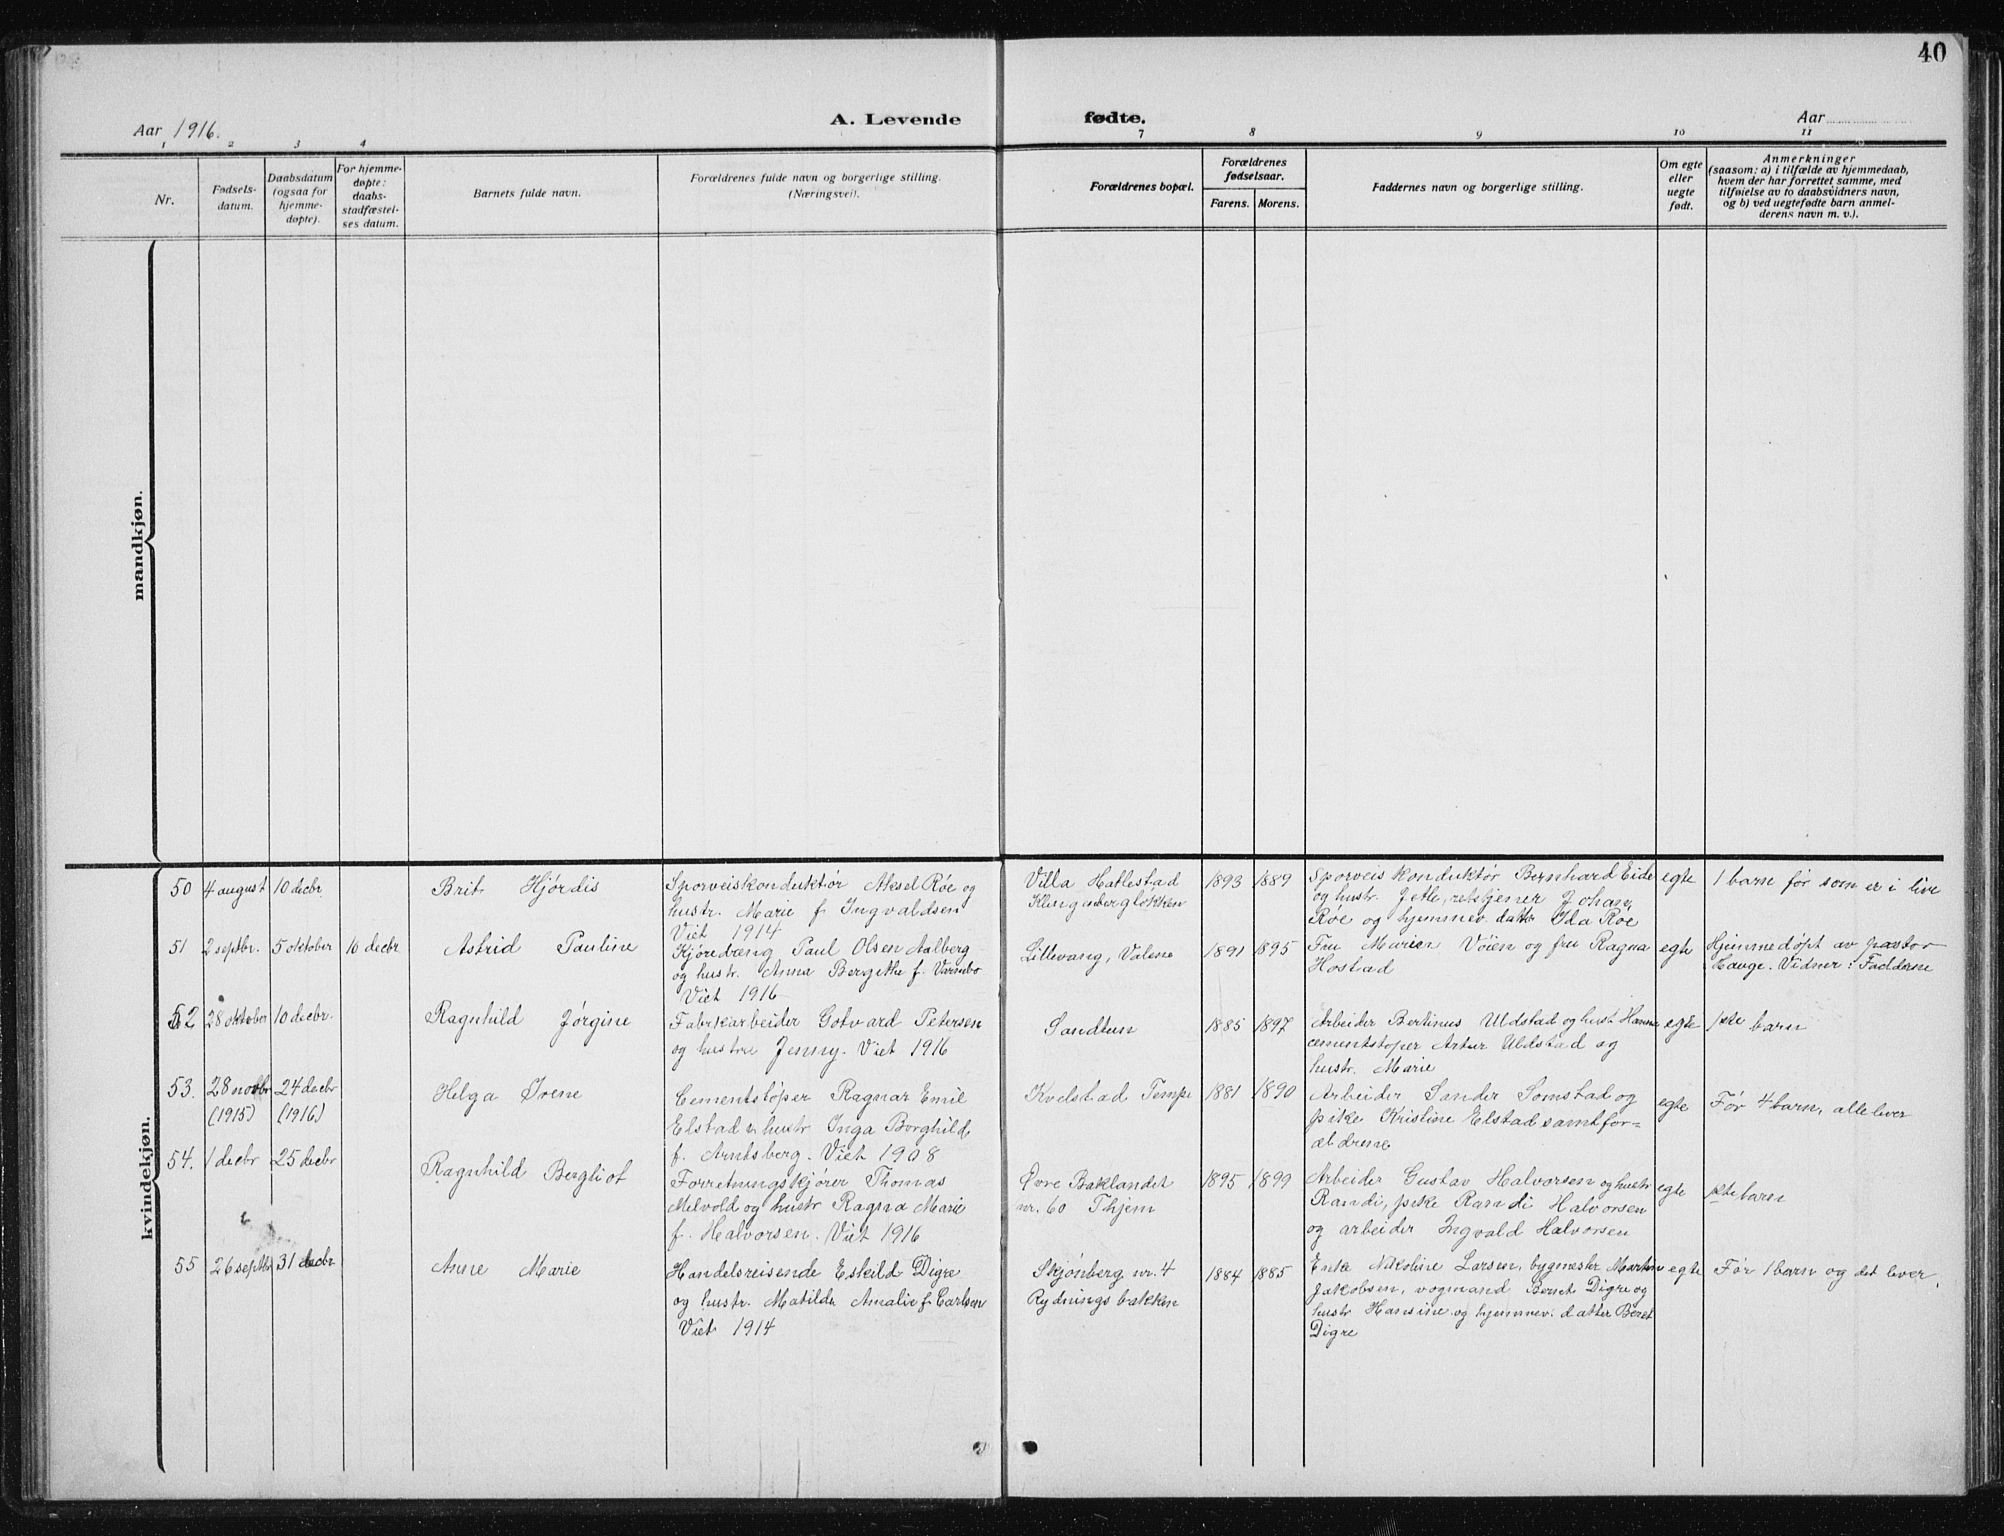 40
Aar 1916.
A. Levende fødte.
Aar
1 2 3 4 7 8 9 10 11
Nr.
Fødsels-
datum.
Daabsdatum
(ogsaa for
hjemme-
døpte).
For hjemme-
døpte:
daabs-
stadfæstel-
ses datum.
Barnets fulde navn.
Forældrenes fulde navn og borgerlige stilling.
(Næringsvei).
Forældrenes bopæl.
Forældrenes
fødselsaar.
Farens. Morens.
Faddernes navn og borgerlige stilling.
Om egte
eller
uegte
født.
Anmerkninger
(saasom: a) i tilfælde av hjemmedaab,
hvem der har forrettet samme, med
tilføielse av to daabsvidners navn,
og b) ved uegtefødte barn anmel-
derens navn m. v.).
mandkjøn.
kvindekjøn.
50 4 august 10 decbr
Brit Hjørdis
Sporveiskonduktør Aksel Røe og
hustr. Marie f Ingvaldsen
Viet 1914
Villa Hatlestad
Klingenbergløkken
1893 1889
Sporveiskonduktør Bernhard Eide
og hustr. Jetle, retstjener Johan
Røe og hjemmev. datter Ida Røe
egte
1 barn før som er i live
51 2 septbr. 5 oktober 10 decbr
Astrid Pauline
Kjøredræng Paul Olsen Aalberg
og hustr. Anna Bergithe f. Varmbo
Viet 1916
Lillevang, Valene
1891 1895
Fru Marien Vöien og fru Ragna
Hostad
egte
Hjemmedöpt av pastor
Hauge. Vidner: Fadderne
52 28 oktober 10 decbr.
Ragnhild Jørgine
Fabrkarbeider Gotvard Petersen
og hustru Jenny. Viet 1916
Sandtun
1885 1897
Arbeider Bertinus Uldstad og hust Hanna
cementstøper Artur Uldstad og
hustr. Marie
egte
1ste barn
53. 28 novbr 24 decbr
(1915) (1916)
Helga Irene
Cementstøper Ragnar Emil
Elstad & hustr Inga Borghild
f. Arntsberg. Viet 1908
Kvelstad Tempe
1881 1890
Arbeider Sander Somstad og
pike Kristine Elstad samt for=
ældrene
egte
Før 4 barn, alle lever
54. 1 decbr 25 decbr
Ragnhild Bergliot
Forretningskjører Thomas
Melvold og hustr Ragna Marie
f. Halvorsen. Viet 1916
Øvre Baklandet
nr. 60 Thjem
1895 1899
Arbeider Gustav Halvorsen og hustr
Randi, pike Randi Halvorsen
og arbeider Ingvald Halvorsen
egte
1ste barn
55 26 septbr 31 decbr
Anne Marie
Handelsreisende Eskild Digre
og hustr. Matilde Amalie f. Carlsen
Viet 1914
Skjønberg nr. 4
Rydningsbakken
1884 1885
Enke Nikoline Larsen, bygmester Martin
Jakobsen, vogmand Bernt Digre og
hustr Hansine og hjemmev. datter Beret
Digre
egte
Før 1 barn og det lever.